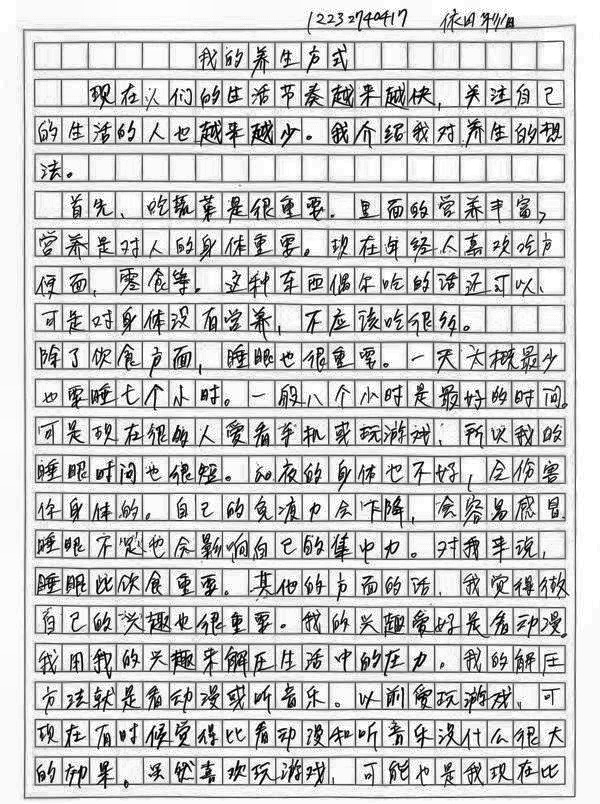 12232740417
我的养生方式
现在人们的生活节奏越来越快，关注自己
的生活的人也越来越少。我介绍我对养生的想
法。
首先、吃蔬菜是很重要。里面的营养丰富，
营养是对人的身体重要。现在年经人喜欢吃方
便面，零食等。这种东西偶尔吃的话还可以，
可是对身体没有营养，不应该吃很多。
除了饮食方面，睡眼也很重要。一天大概最少
也要睡七个小时。一般八个小时是最好的时间。
可是现在很多人爱看手机或玩游戏，所以我的
睡眼时间也很短。夜的身体也不好，会伤害
你身体的。自己的免疫力会下降，会容易感冒.
睡眼不足也会影响自己的集中力。对我来说，
睡眼比饮食重要。其他的方面的话，我觉得做
自己的兴趣也很重要。我的兴趣爱好是看动漫。
我用我的兴趣来解压生活中的压力。我的解压
方法就是看动漫或听音乐。以前爱玩游戏，可
现在有时候觉得比看动漫和听音乐没什么很大
的效果。虽然喜欢玩游戏，可能也是我现在比